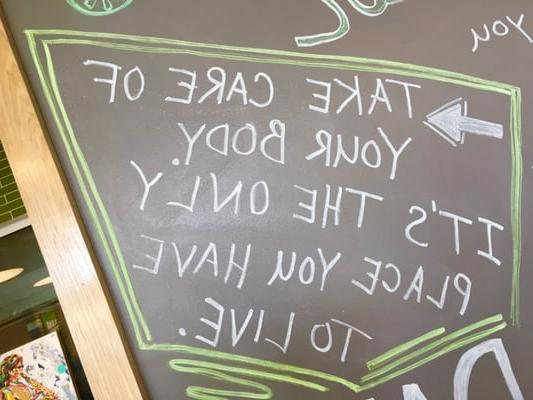 you
TAKE CARE OF
YOUR BODY.
IT'S THE ONLY
PLACE YOU HAVE
TO LIVE.